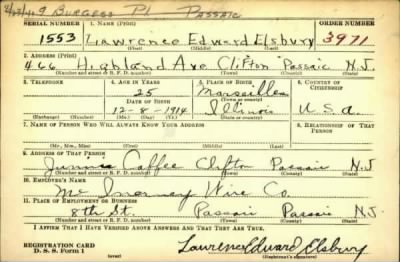 49 Burgess Pl Passaic
SERIAL NUMBER 1. NAME (Print) ORDER NUMBER
1553 Lawrence Edward Elsbury 3971
(First) (Middle) (Last)
2. ADDRESS (Print)
466 Highland Ave Clifton Passaic N.J.
(Number and street or R. F. D. number) (Town) (County) (State)
3. TELEPHONE 4. AGE IN YEARS 5. PLACE OF BIRTH 6. COUNTRY OF CITIZENSHIP
25 Marseilles
DATE OF BIRTH (Town or county)
12-8-1914 Illinois U.S.A.
(Exchange) (Number) (Mo.) (Day) (Yr.) (State or country)
7. NAME OF PERSON WHO WILL ALWAYS KNOW YOUR ADDRESS 8. RELATIONSHIP OF THAT PERSON
(Mr., Mrs., Miss) (First) (Middle) (Last)
9. ADDRESS OF THAT PERSON
Clifton Passaic N.J
(Number and street or R. F. D. number) (Town) (County) (State)
10. EMPLOYER'S NAME
Wire Co.
11. PLACE OF EMPLOYMENT OR BUSINESS
8th St. Passaic Passaic N.J.
(Number and street or R. F. D. number) (Town) (County) (State)
I AFFIRM THAT I HAVE VERIFIED ABOVE ANSWERS AND THAT THEY ARE TRUE.
REGISTRATION CARD
D. S. S. Form 1 (over) Lawrence Edward Elsbury
(Registrant's signature)